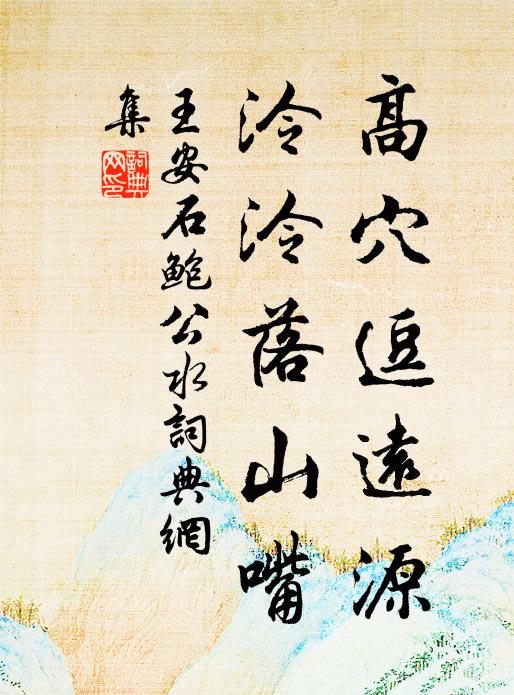 高穴逗遠源
泠泠落山嘴
王安石鮑公水詞典網
集
詞典網印